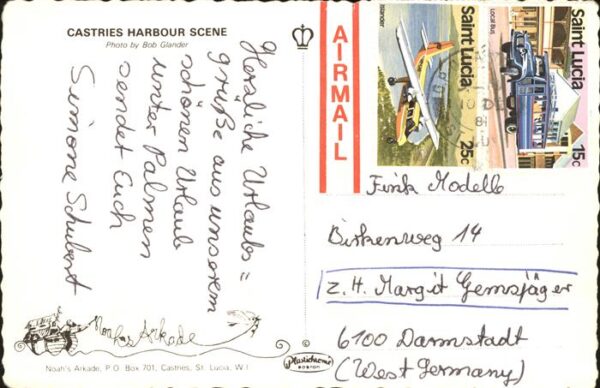 CASTRIES HARBOUR SCENE
Photo by Bob Glander
Herzliche Urlaubs=
grüße aus unserem
schönen Urlaub
unter Palmen
sendet Euch
Simone Schubert
Noahs Arkade
Noah's Arkade, P.O. Box 701, Castries, St. Lucia, W.I
AIRMAIL
Islander
Saint Lucia
25c
Local Bus
Saint Lucia
15c
81
Fink Modelle
Birkenweg 14
z. H. Margit Gemsjäger
6100 Darmstadt
(West Germany)
Plastichrome
BOSTON